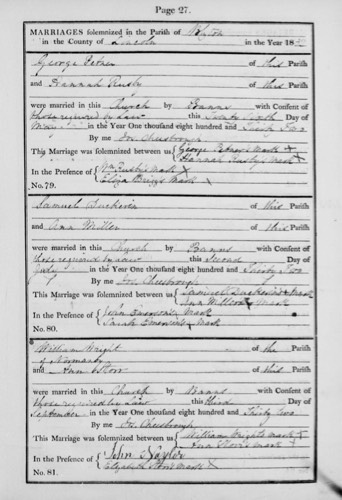 Page 27.
MARRIAGES solemnized in the Parish of Blyton
in the County of Lincoln in the Year 18
George of this Parish
and Hannah Rusby of this Parish
were married in this Church by Banns with Consent of
those required by Law this Twenty Day of
in the Year One thousand eight hundred and Thirty Two
By me Jos. Cheesbrough
This Marriage was solemnized between us George Mark X
Hannah Rusby's Mark X
In the Presence of Wm Rusby's Mark X
Eliza Briggs Mark X
No. 79.
Samuel of this Parish
and Ann Miller of this Parish
were married in this Church by Banns with Consent of
those required by Law this Second Day of
July in the Year One thousand eight hundred and Thirty Two
By me Jos. Cheesbrough
This Marriage was solemnized between us Samuel Mark
Ann Miller Mark
In the Presence of John Mark
Sarah Mark
No. 80.
William Wright of the Parish
of Normanby
and Ann Storr of this Parish
were married in this Church by Banns with Consent of
those required by Law this Third Day of
September in the Year One thousand eight hundred and Thirty Two
By me Jos. Cheesbrough
This Marriage was solemnized between us William Wright's Mark X
Ann Storr's Mark X
In the Presence of John Naylor
Elizabeth Storr's Mark X
No. 81.